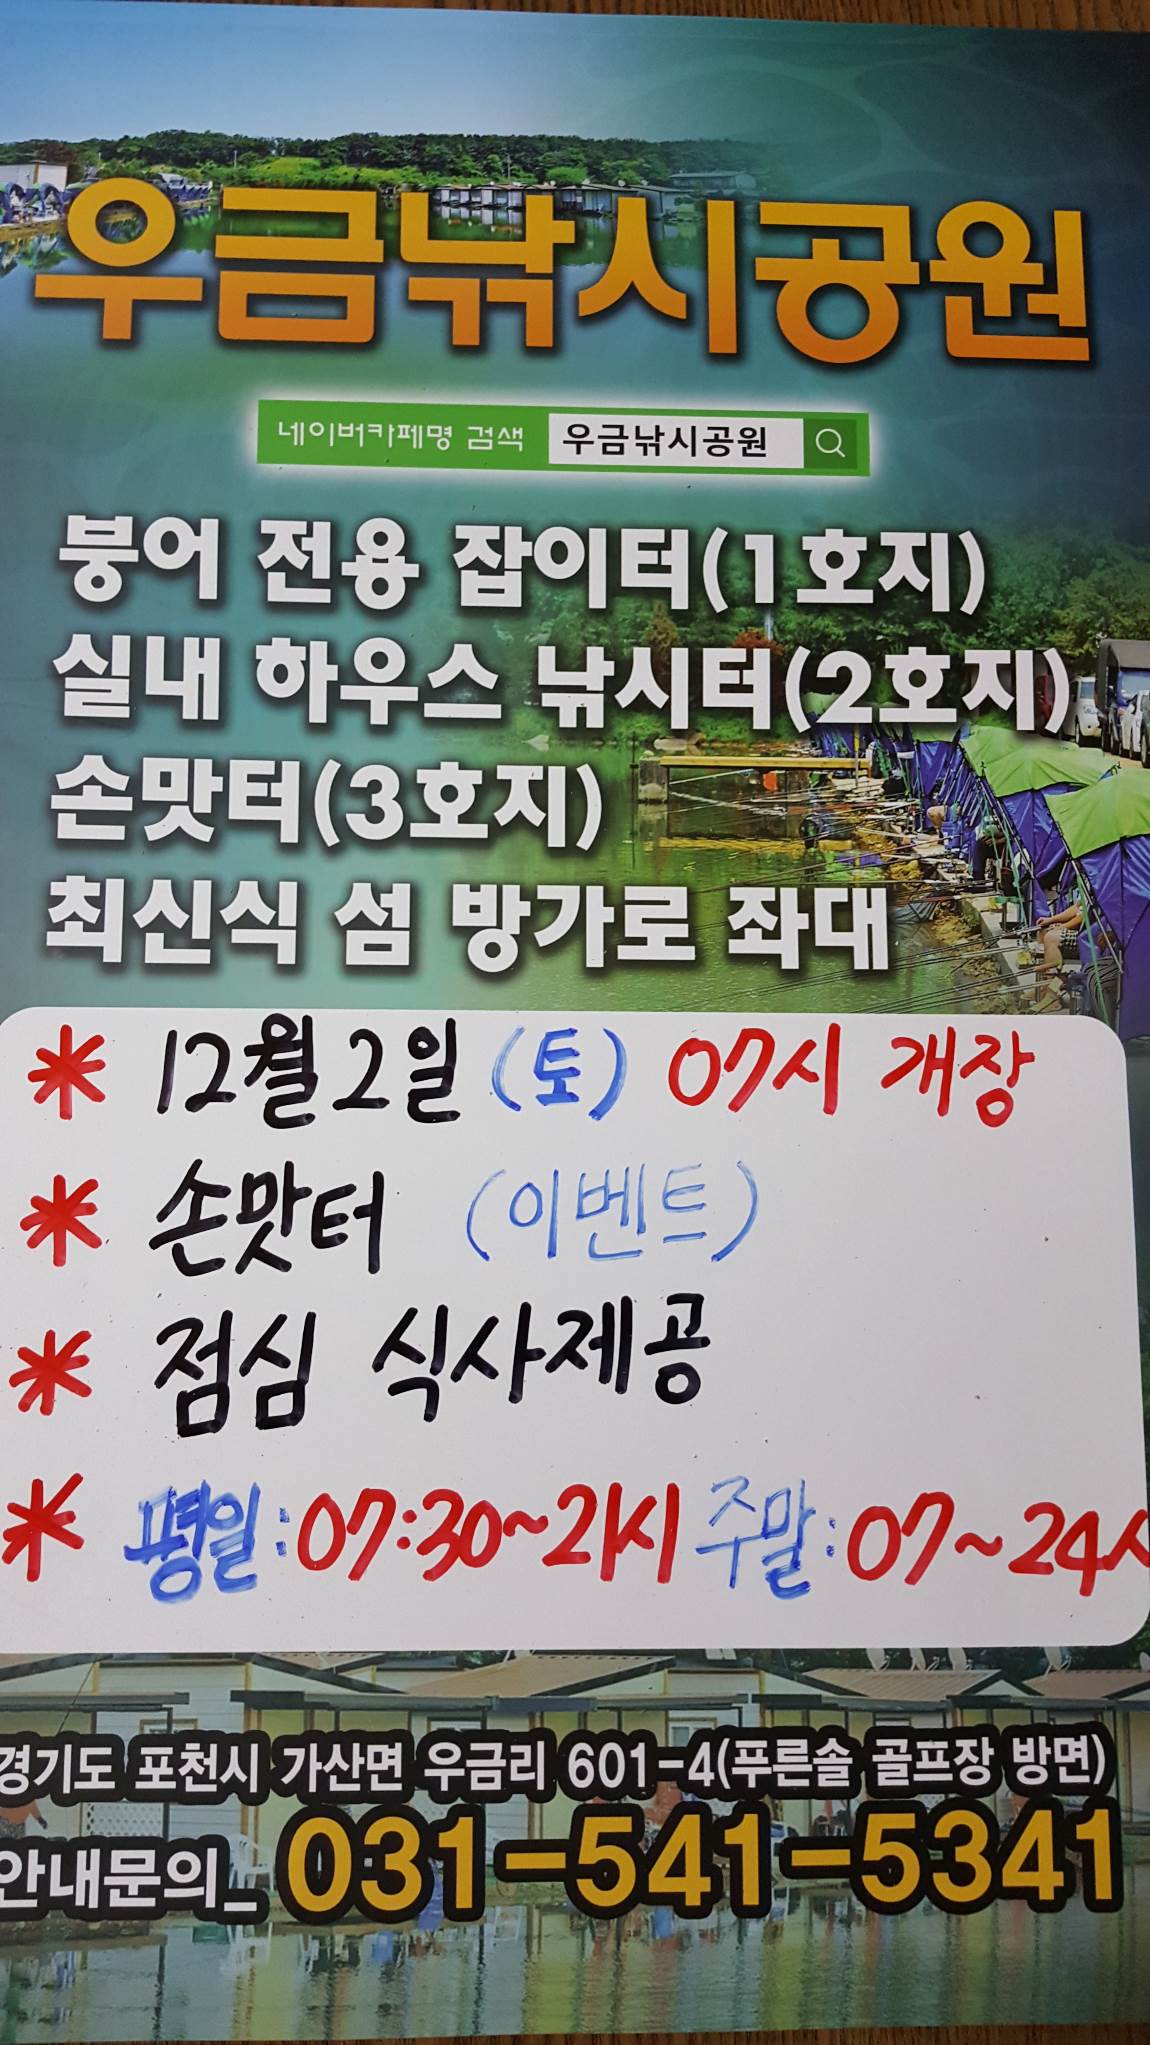 우금낚시공원
네이버카페명 검색 우금낚시공원
붕어 전용 잡이터(1호지)
실내 하우스 낚시터(2호지)
손맛터(3호지)
최신식 섬 방가로 좌대
* 12월2일 (토) 07시 개장
* 손맛터 (이벤트)
* 점심 식사제공
* 평일:07:30~21시 주말:07~24시
경기도 포천시 가산면 우금리 601-4(푸른솔 골프장 방면)
안내문의_ 031-541-5341